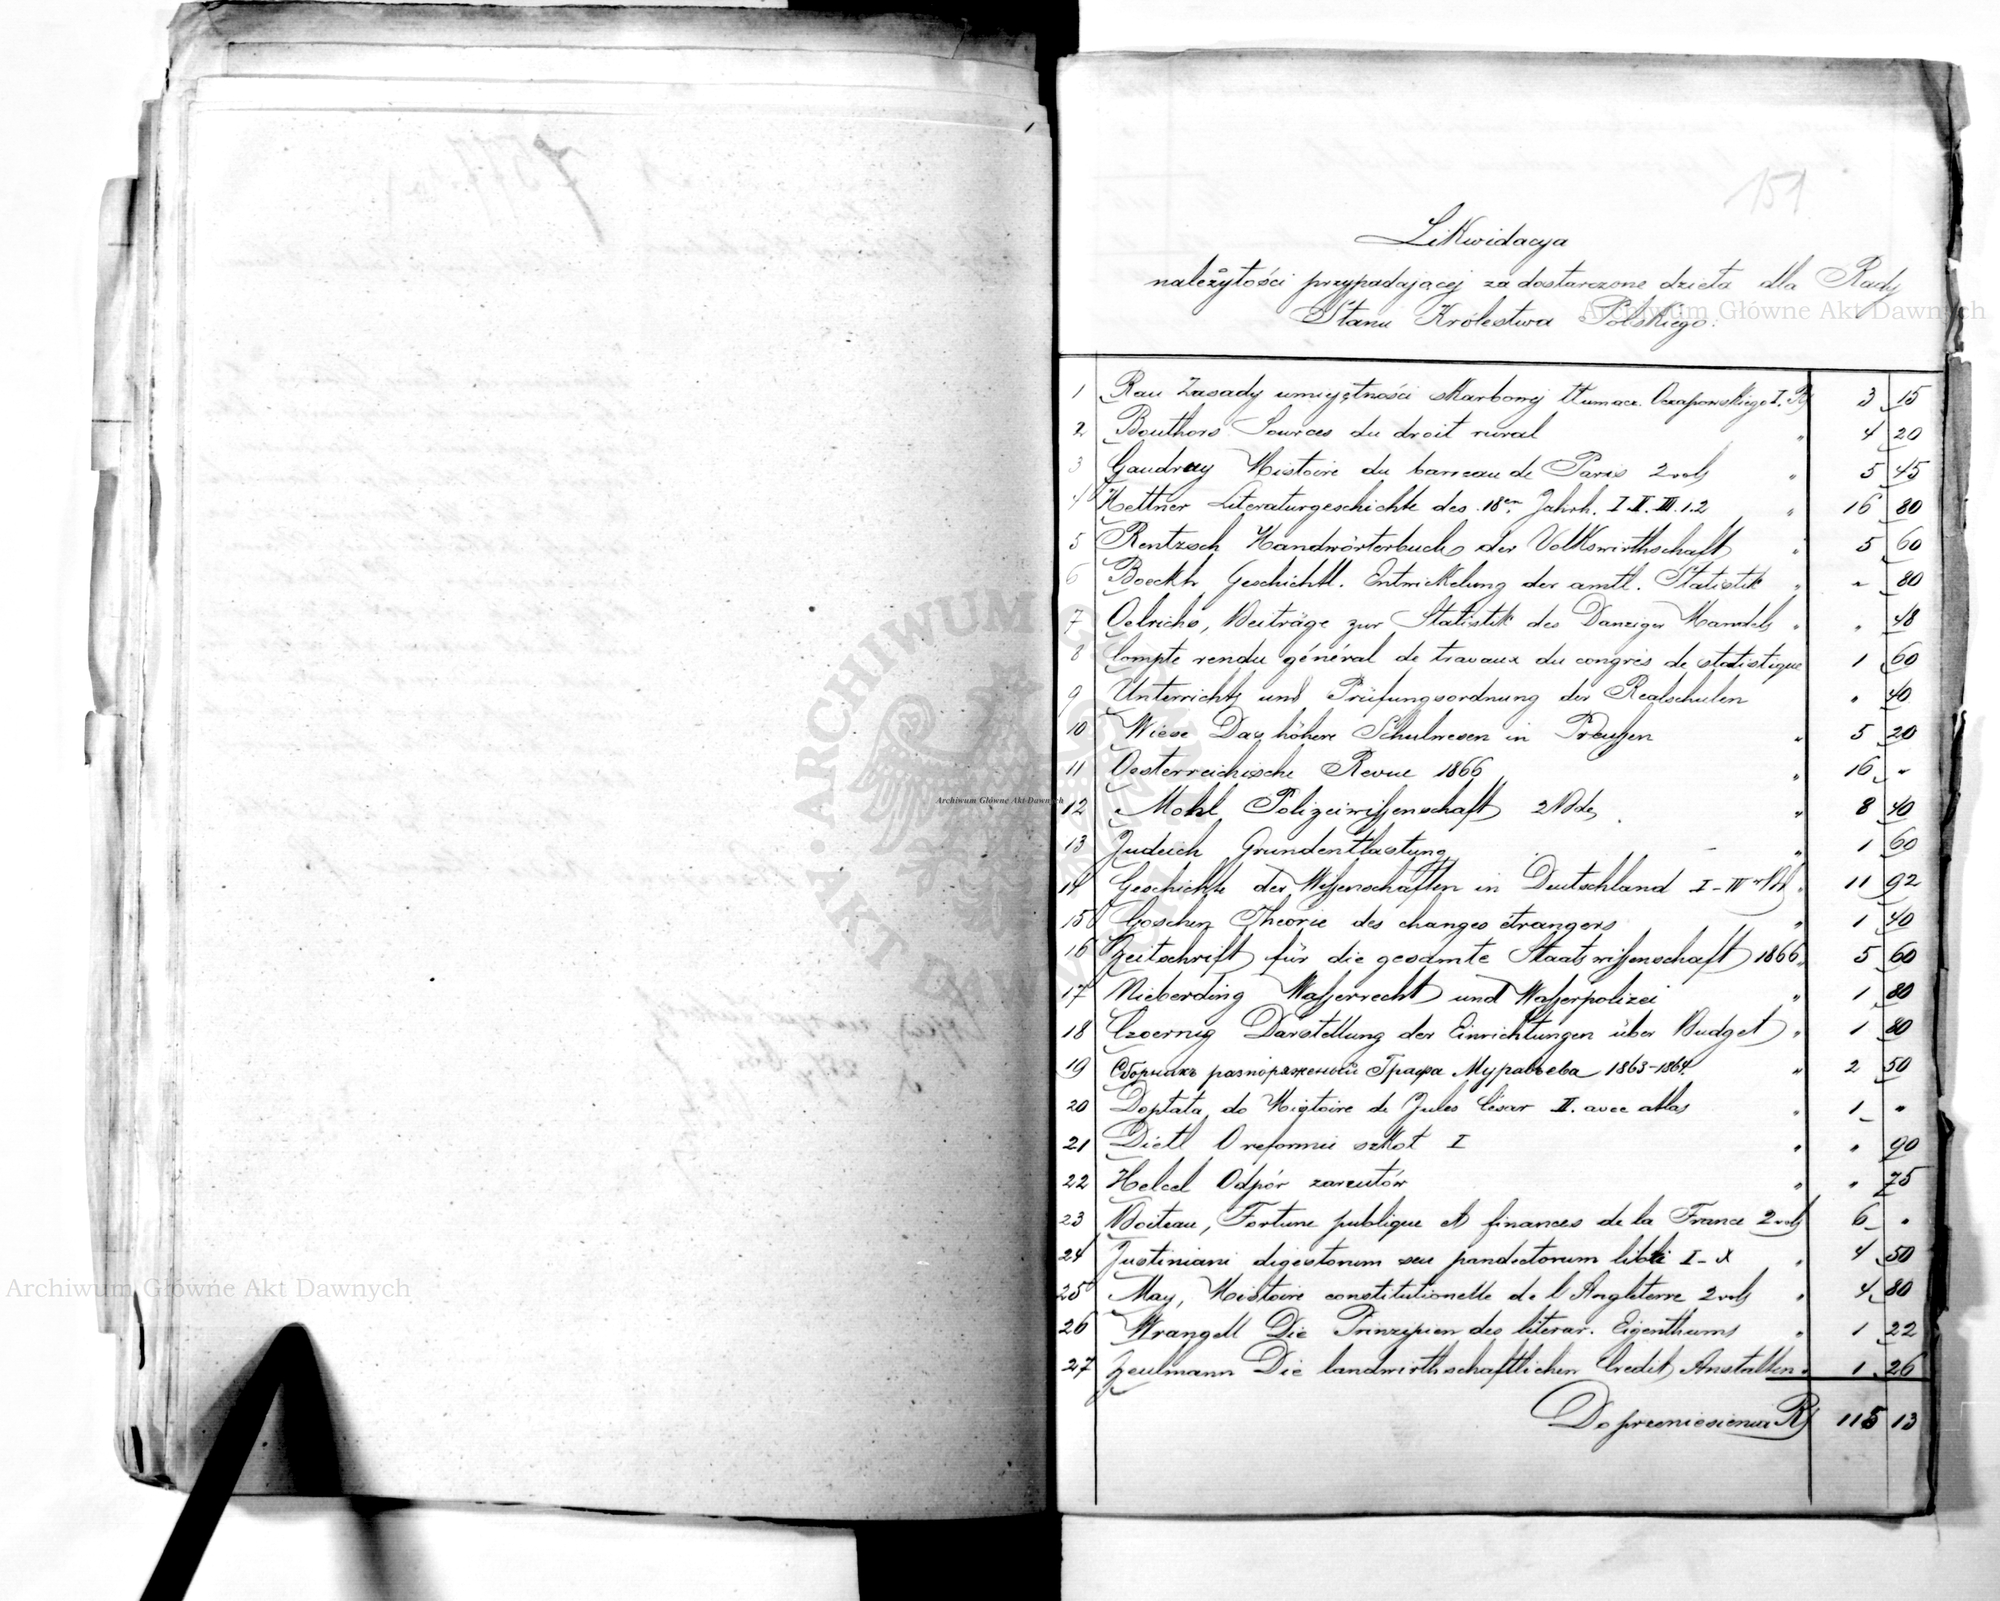 151
Likwidacya
należytości przypadającej za dostarczone dzieła dla Rady
Stanu Królestwa Polskiego:
1 Rau Zasady umiejętności skarbowej tłumacz. Oczapowskiego I. Rs 3 15
2 Bouthors Sources du droit rural " 4 20
3 Gaudry Histoire du barreau de Paris 2 vols " 5 45
4 Hettner Literaturgeschichte des 18en Jahrh. I. II. III. 1.2 " 16 80
5 Rentzsch Handwörterbuch der Volkswirthschaft " 5 60
6 Boeckh Geschichtl. Entwickelung der amtl. Statistik " " 80
7 Oelrichs, Beiträge zur Statistik des Danziger Handels " " 48
8 Compte rendu général de travaux du congrès de statistique 1 60
9 Unterrichts und Prüfungsordnung der Realschulen " 40
10 Wiese Das höhere Schulwesen in Preußen " 5 20
11 Oesterreichische Revue 1866 " 16 "
12 Mohl Polizeiwißenschaft 2 Bde " 8 40
13 Judeich Grundentlastung " 1 60
14 Geschichte der Wißenschaften in Deutschland I-IV Bd " 11 92
15 Goschen Theorie des changes étrangers " 1 40
16 Zeitschrift für die gesamte Staatswißenschaft 1866 " 5 60
17 Nieberding Waßerrecht und Waßerpolizei " 1 80
18 Czoernig Darstellung der Einrichtungen über Budget " 1 80
19 Сборникъ разпоряженій Графа Муравьева 1863-1864 " 2 50
20 Dopłata do Histoire de Jules César II. avec atlas " 1 "
21 Dietl O reformie szkół I " " 90
22 Helcel Odpór zarzutów " " 75
23 Boiteau, Fortune publique et finances de la France 2 vols 6 "
24 Justiniani digestorum seu pandectorum libri I-X " 4 50
25 May, Histoire constitutionelle de l'Angleterre 2 vols " 4 80
26 Wrangell Die Prinzipien des literar. Eigenthums " 1 22
27 Zeulmann Die landwirthschaftlichen Credit Anstalten " 1 26
Do przeniesienia Rs 115 13
Archiwum Główne Akt Dawnych
Archiwum Główne Akt Dawnych
Archiwum Główne Akt Dawnych